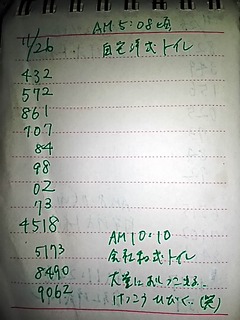 AM 5:08頃
11/26 自宅洋式トイレ
432
572
861
707
84
98
02
73
4518
AM 10:10
5173 会社和式トイレ
8490 大量におしっこ
9062 けっこうひびく。(笑)